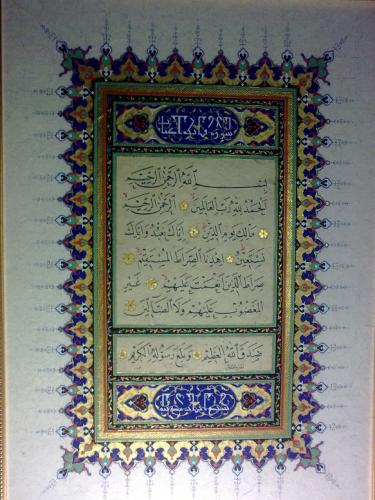 سورة فاتحة الكتاب
بسم الله الرحمن الرحيم
الحمد لله رب العالمين الرحمن الرحيم
مالك يوم الدين إياك نعبد وإياك
نستعين اهدنا الصراط المستقيم
صراط الذين أنعمت عليهم غير
المغضوب عليهم ولا الضالين
صدق الله العظيم وبلغ رسوله الكريم